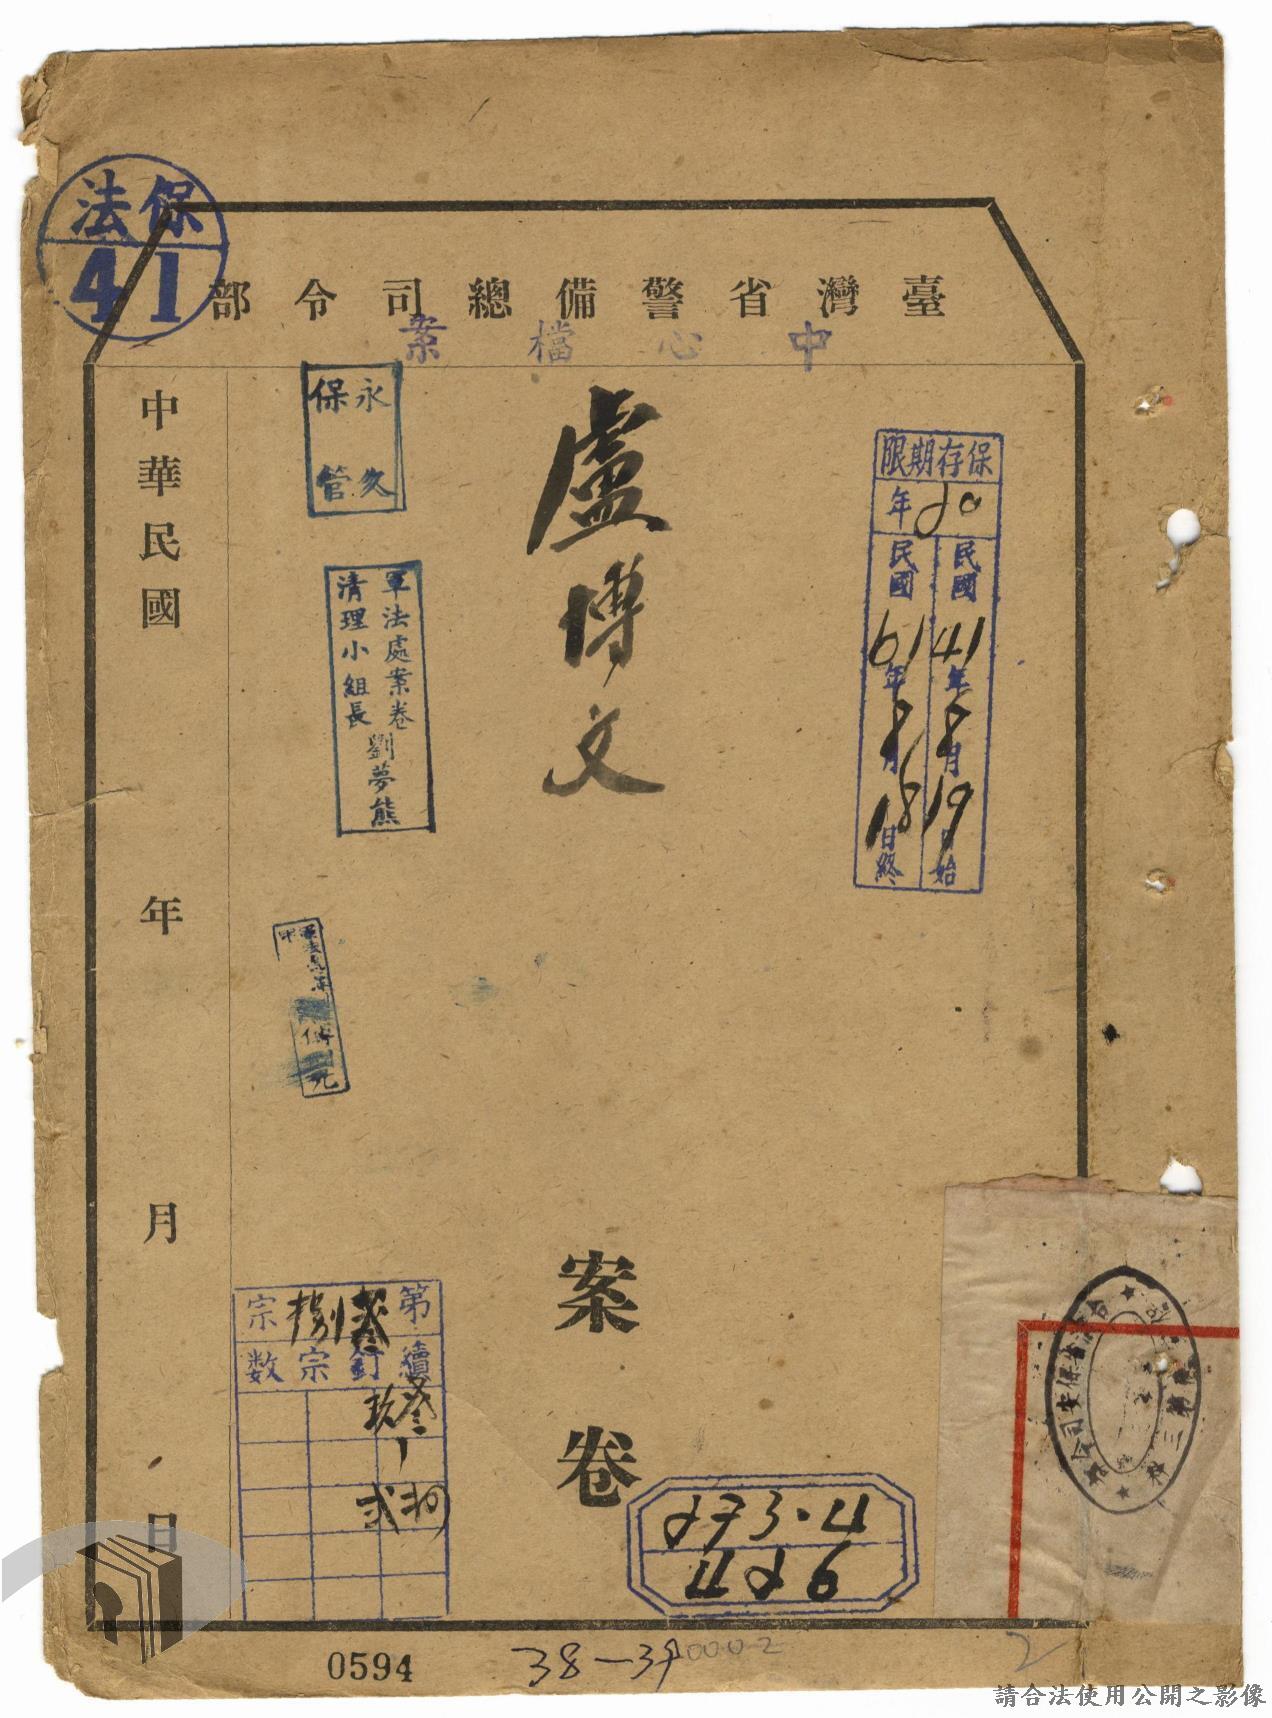 保法
41
臺灣省警備總司令部
中心檔案
保存期限
20年
民國41年8月19日始
民國61年8月18日終
盧博文
案卷
永久
保管
軍法處案卷
清理小組長劉夢熊
第宗
捌
續訂宗数
中華民國 年 月 日
273.4
426
臺灣省保安司令部
0594
38-39
0002
2
請合法使用公開之影像